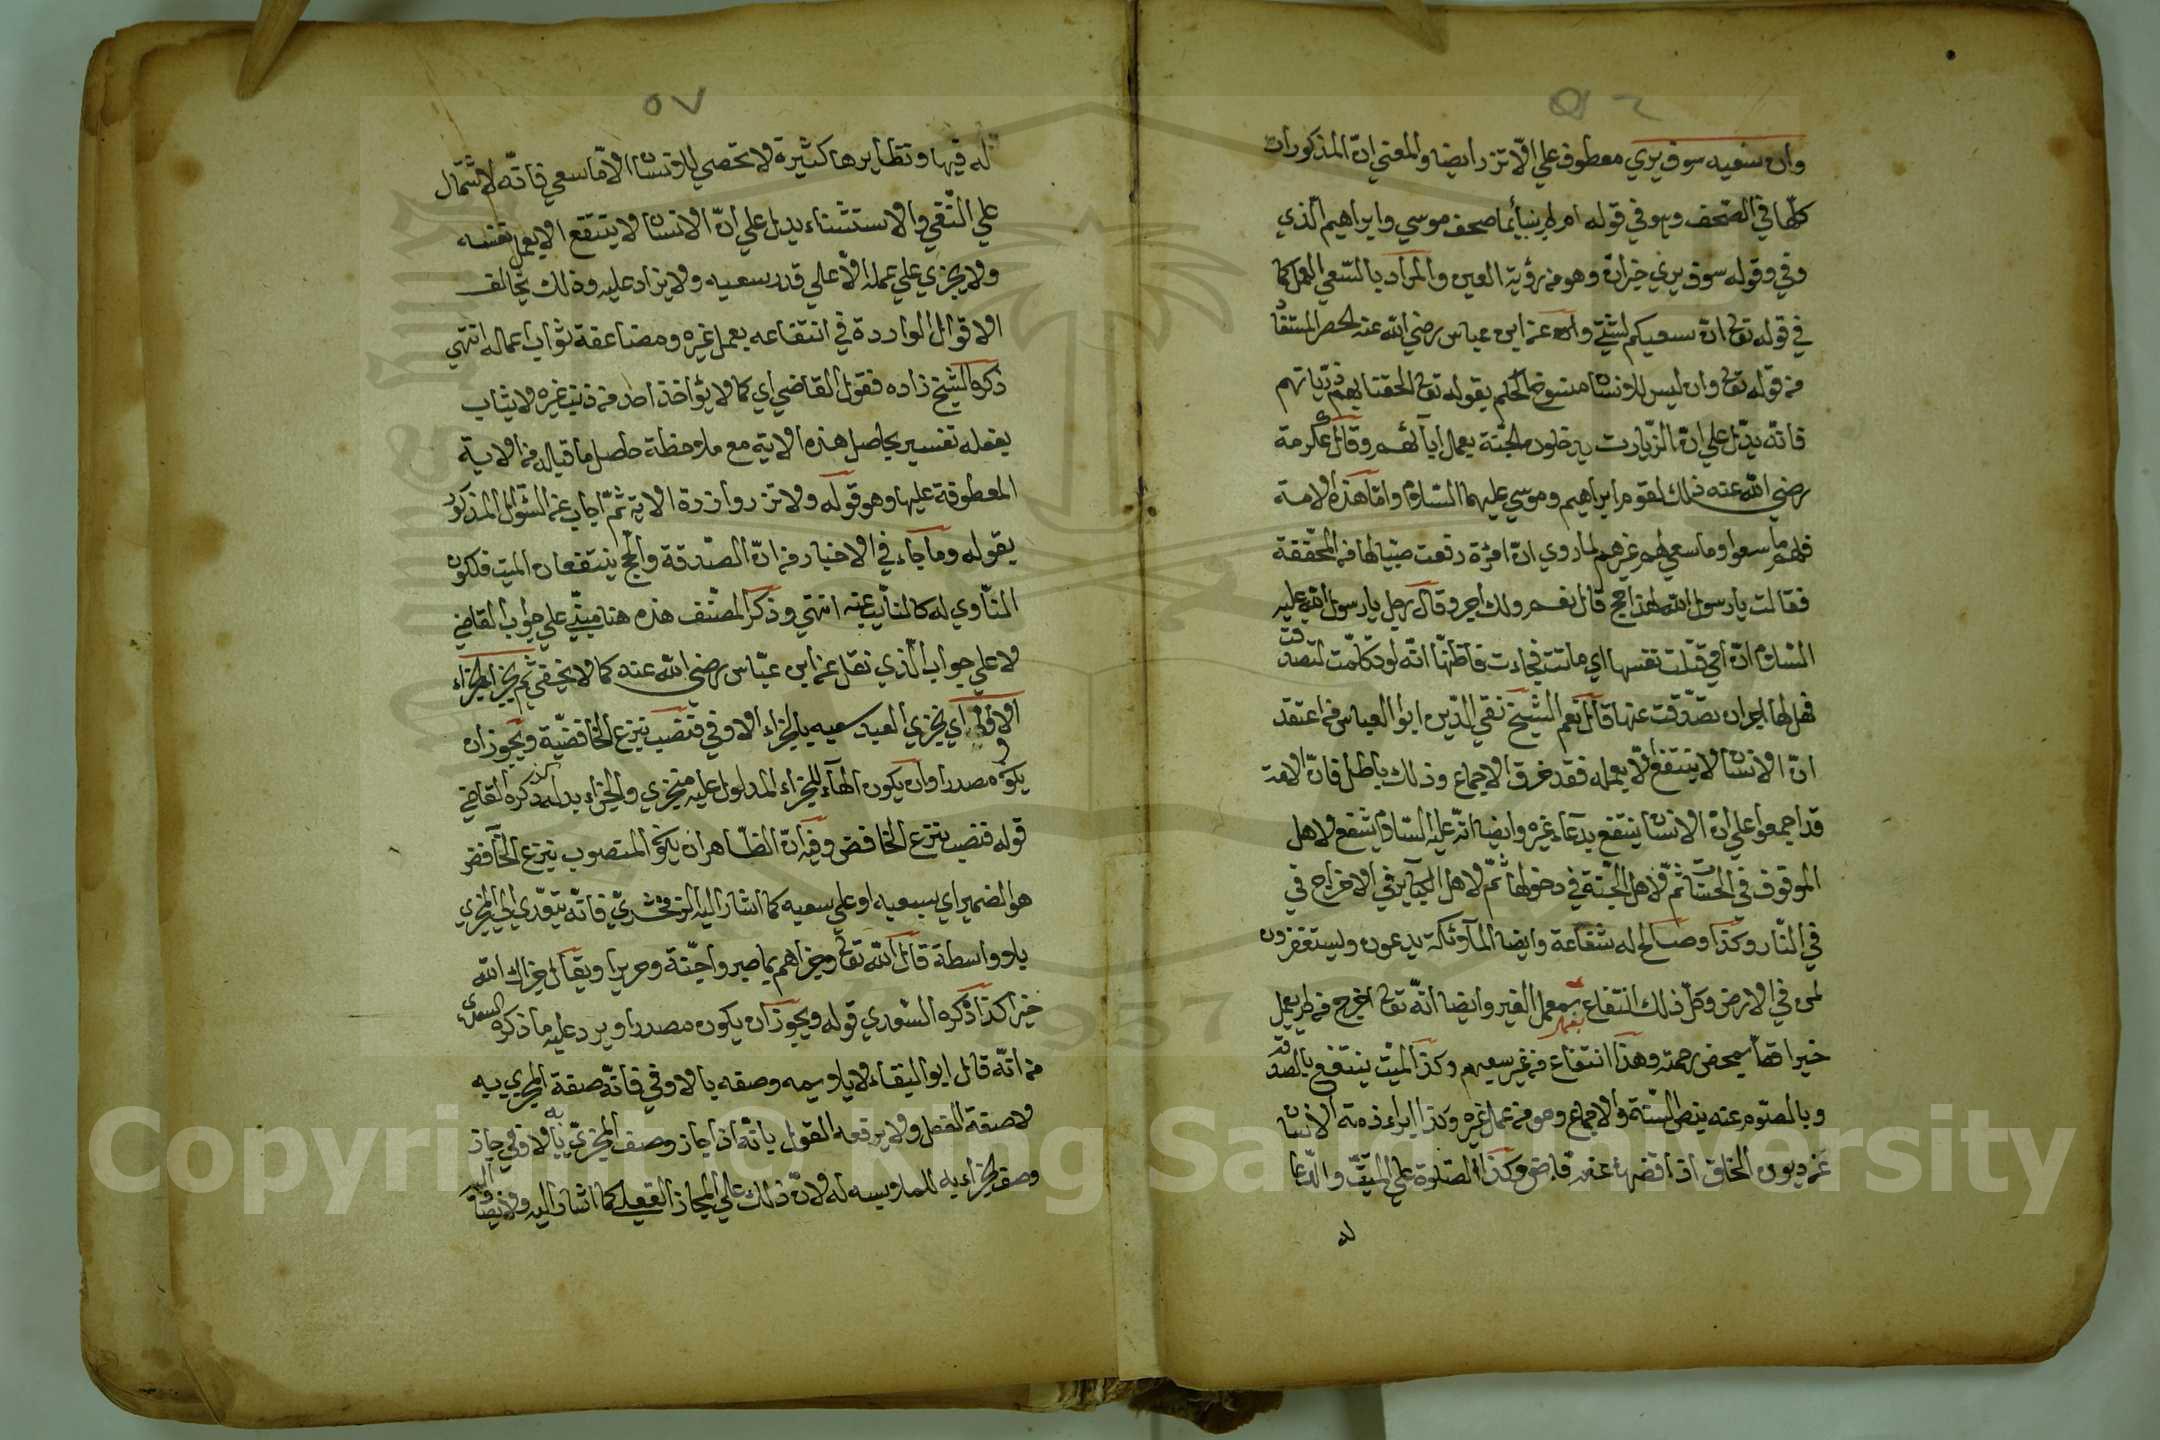 ٥٦
وان سعيه سوف يري معطوف علي الّا تزر ايضا والمعني انّ المذكورات
كلّها في الصّحف وهو في قوله ام لم ينبأ بما صحف موسي وابراهيم الّذي
وفي وقوله سوف يري خبر انّ وهو من رؤية العين والمراد بالسّعي العمل كما
في قوله تع انّ سعيكم لشتّي وان عن ابن عباس رضي الله عنه الحصر المستفاد
من قوله تع وان ليس للانسان منسوخ الحكم بقوله تع الحقنا بهم ذرّياتهم
فانّه يدّل علي انّ الذّريات يدخلون الجنّة بعمل ابآئهم وقال عكرمة
رضي الله عنه ذلك لقوم ابراهيم وموسي عليهما السّلام وامّا هذه الامة
فلهم ما سعوا وما سعي لهم غيرهم لما روي انّ امرأة رفعت صبيا لها من المحفّة
فقالت يا رسول الله لهذا حج قال نعم ولك اجر وقال رجل يا رسول الله عليه
السّلام انّ امي قتلت نفسها اي ماتت فجاءت فاظنّها انّه لو تكلّمت لتصدّقت
فهل لها اجر ان تصدّقت عنها قال نعم الشّيخ تقي الدّين ابو العباس من اعتقد
انّ الانسان لا ينتفع الّا بعمله فقد خرق الاجماع وذلك باطل فانّ الامّة
قد اجمعوا علي انّ الانسان ينتفع بدعاء غيره وايضا انّه عليه السّلام يشفع لاهل
الموقوف في الحساب ثمّ لاهل الجنّة في دخولها ثمّ لاهل الكبآير في الاخراج في
في النّار وكذا وصالح له شفاعة وايضا الملآئكة يدعون ويستغفرون
لمن في الارض وكلّ ذلك انتفاع بعمل الغير وايضا انّه تع اخرج من لم يعمل
خيرا قط بمحض رحمته وهذا انتفاع من غير سعيهم وكذا الميّت ينتفع بالصدقة
وبالصّوم عنه بنصّ السّنّة والاجماع وهو من عمل غيره وكذا ابراء ذمة الانسان
عن ديون الخلق اذا قضها عنه قاض وكذا الصّلوة علي الميّت والدّعا
له
٥٧
له فيها ونظايرها كثيرة لا تحصي للانسان الّا ما سعي فانّه لاشتمال
علي النّفي والاستثناء يدل علي انّ الانسان لا ينتفع الا بعمل نفسه
ولا يجزي علي عمله الّا علي قدر سعيه ولا يزاد عليه وذلك يخالف
الاقوال الواردة في انتفاعه بعمل غيره ومضاعفة ثواب اعماله انتهي
ذكره الشّيخ زاده فقول القاضي اي كما لا يؤاخذ احد من ذنب غيره لا يثاب
بفعله تفسير بحاصل هذه الاية مع ملاحظة حاصل ما قباله من الاية
المعطوفة عليها وهو قوله ولا تزر وازرة الاية ثمّ اجاب عن السّؤال المذكور
بقوله وما جاء في الاخبار من انّ الصّدقة والحج ينتفعان الميت فلكون
النّاوي له كالنّائب عنه انتهي وذكر المصنّف هذه هنا مبنّي علي جواب القاضي
لا علي جواب الّذي نقل عن ابن عبّاس رضي الله عنه كما لا يخفي ثم يجزاه الجزاء
الاوفي اي يجزي العبد سعيه بالجزاء الاوفي فنصب بنزع الخافضيّة ويجوز ان
يكون مصدرا وان يكون الهآء للجزاء المدلول عليه منجزي والجزاء بدله ذكره القاضي
قوله فنصب بنزع الخافض وفيه انّ الظّاهر ان يكون المنصوب بنزع الخآفض
هو الضمير اي بسعيه او علي سعيه كما اشار اليه الزمخشريّ فانّه يتعّدي الي المجزي
بلا واسطة قال الله تع وجزاهم بما صبروا جنّة وحريرا ويقال جزاك الله
خيرا كذا ذكره السّعدي قوله ويجوز ان يكون مصدرا ويرد عليه ما ذكره السعدي
من انّه قال ابو البقاء لا يلاويمه وصفه بالاوفي فانّه صفة المجزي به
لا صفة الفعل ولا يرفعه القول بانّه اذا جاز وصف المجزيّ به بالاوفي جاز
وصف الجزاء به للملابسه له لانّ ذلك علي المجاز العقلي كما اشار اليه ولا يصار اليه